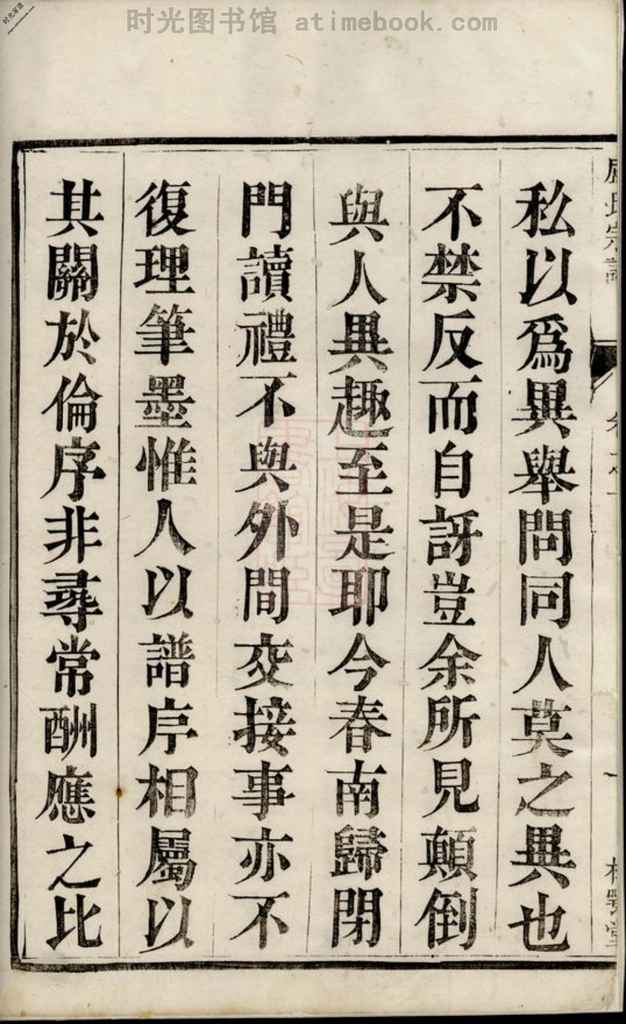 时光图书馆 atimebook.com
私以爲異舉問同人莫之異也
不禁反而自訝豈余所見顛倒
與人異趣至是耶今春南歸閉
門讀禮不與外間交接事亦不
復理筆墨惟人以譜序相屬以
其關於倫序非尋常酬應之比